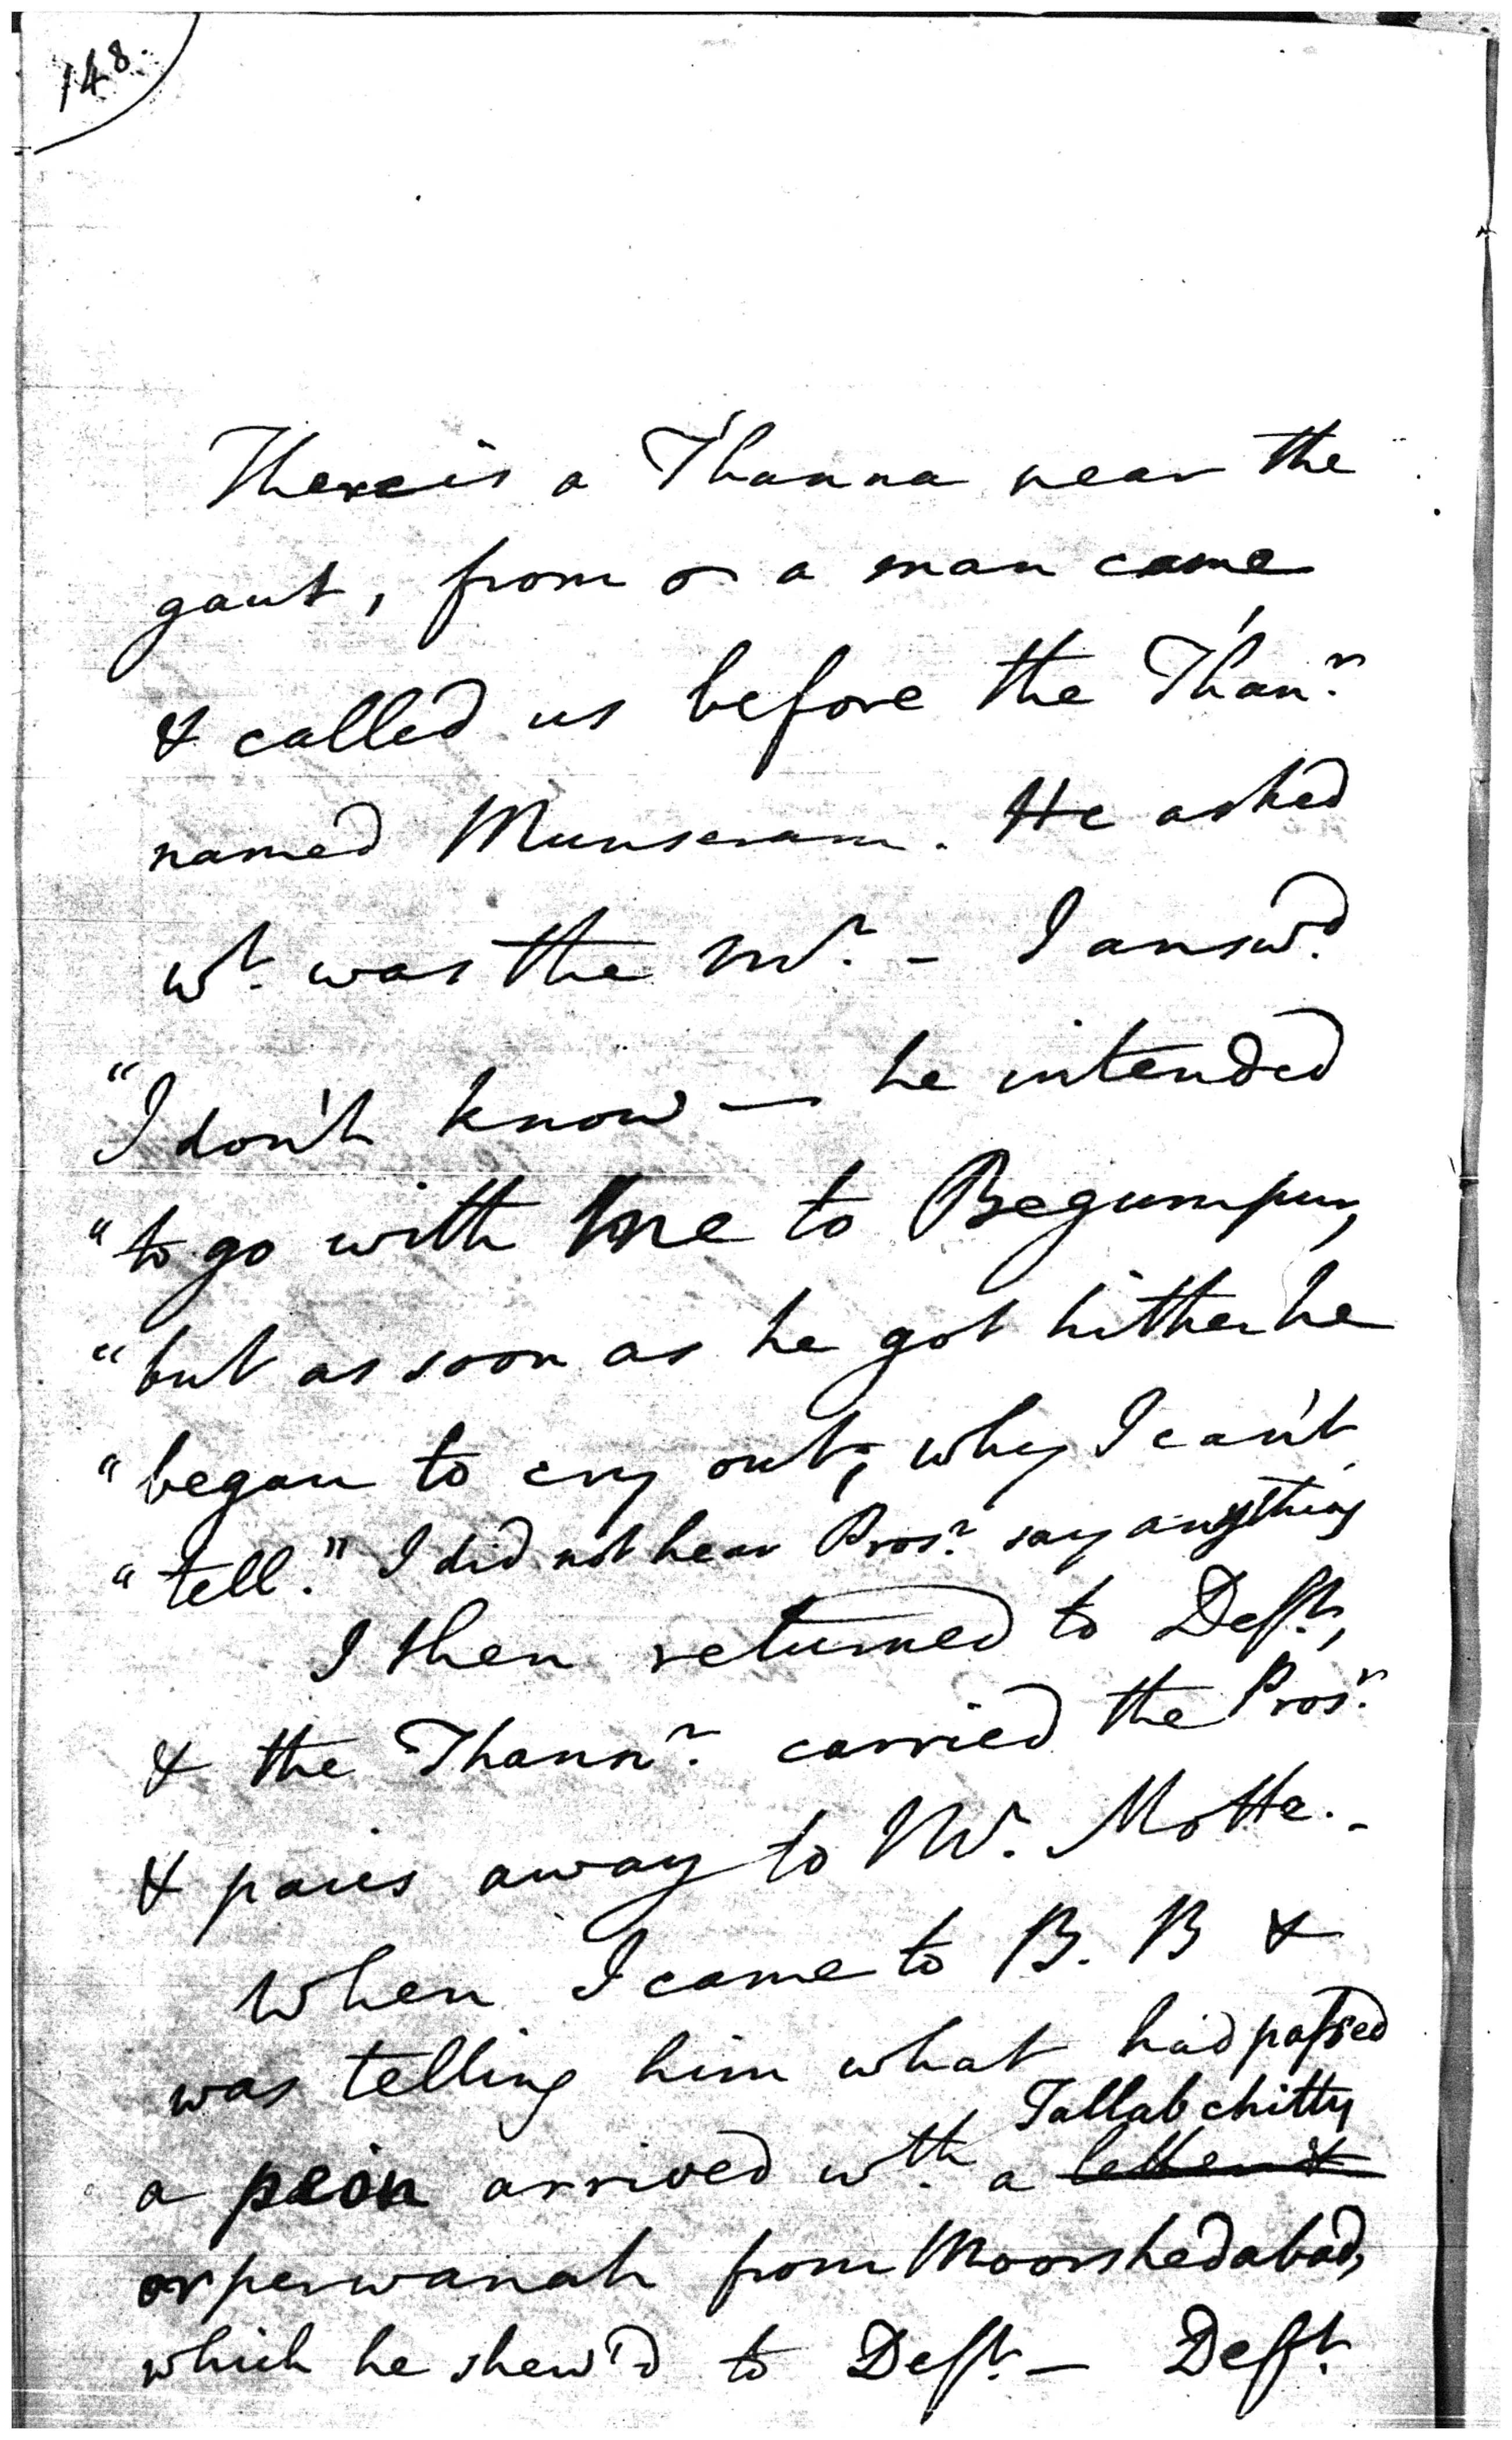 148.
There is a Thanna near the
gaut, from a man came
& called us before the Than.r
named Munseram. He asked
wt. was the Mr. - I answd.
"I don't know — he intended
"to go with me to Begumpur,
"but as soon as he got hither he
"began to cry out; why I can't
"tell." I did not hear Pros.r say anything
I then returned to Deft,
& the Thann.r carried the Pros.r
& paies away to Mr. Motte. -
When I came to B. B &
was telling him what had passed
Tallab chitty
a peon arrived wth. a letter &
or perwanah from Moorshedabad,
which he shew'd to Deft. — Deft.